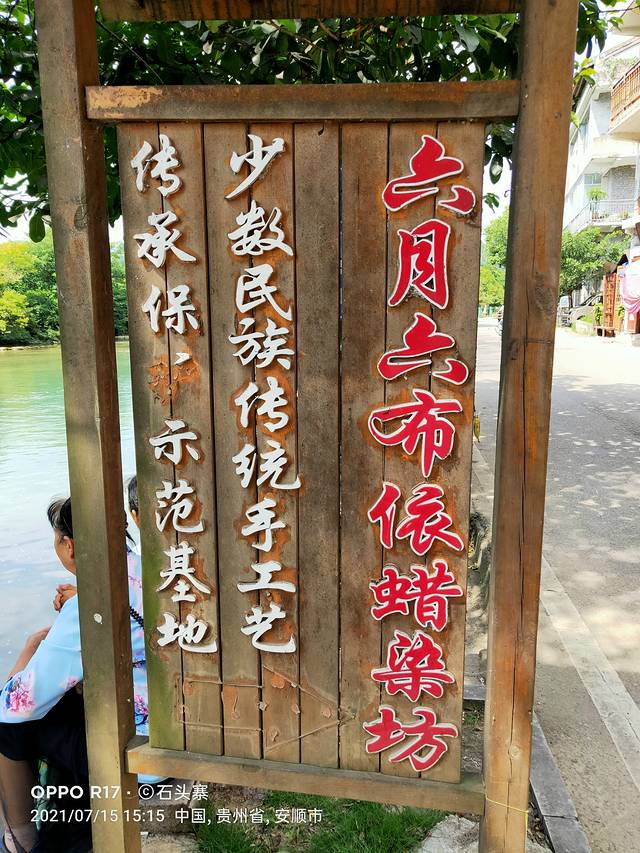 六月六布依蜡染坊
少数民族传统手工艺
传承保护示范基地
OPPO R17 · ©石头寨
2021/07/15 15:15 中国, 贵州省, 安顺市